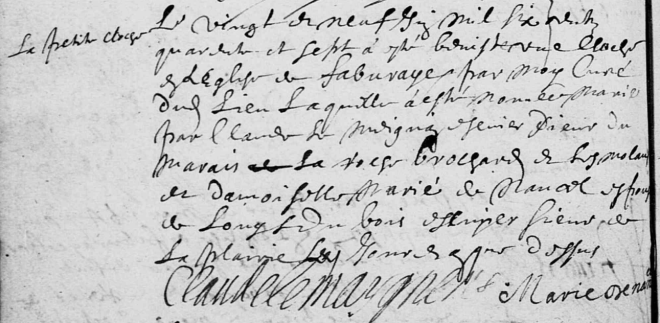 La petite cloche
Le vingt et neuf Juin mil six cents
quarente et sept a esté beniste une cloche
en l'Eglise de faburaye par moy Curé
dud. Lieu Laquelle a esté nommée Marie
par Claude Le escuier sieur du
Marais La roche brochard et
et damoiselle Marie de espouse
de Louys du bois escuyer sieur de
La plaine Les Jour et que dessus
Claude Marie de